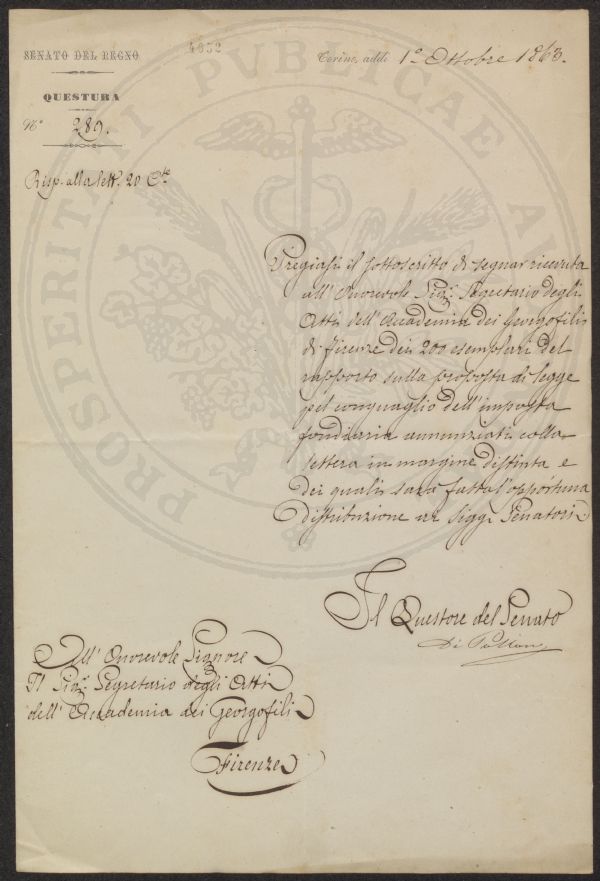 SENATO DEL REGNO
4952
Torino, addì 1° Ottobre 1863.
QUESTURA
N° 289.
Risp. alla lett. 20 Cte
Pregiasi il sottoscritto di segnar ricevuta
all'Onorevole Sigr. Segretario degli
Atti dell'Accademia dei Georgofili
di Firenze dei 200 esemplari del
rapporto sulla proposta di legge
pel conguaglio dell'imposta
fondiaria annunziati colla
lettera in margine distinta e
dei quali sarà fatta l'opportuna
distribuzione ai Sigg. Senatori
Il Questore del Senato
Di
All'Onorevole Signore
Il Sigr. Segretario degli Atti
dell'Accademia dei Georgofili
Firenze
PROSPERITATI PUBLICAE AU